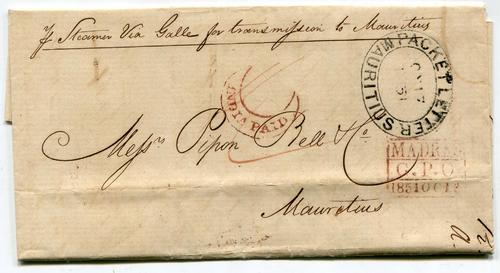 Pr Steamer Via Galle for transmission to Mauritius
PACKET LETTER
MAURITIUS
INDIA PAID
Messrs Pipon Bell & Co
MADRAS
G.P.O
1851 OC
Mauritius